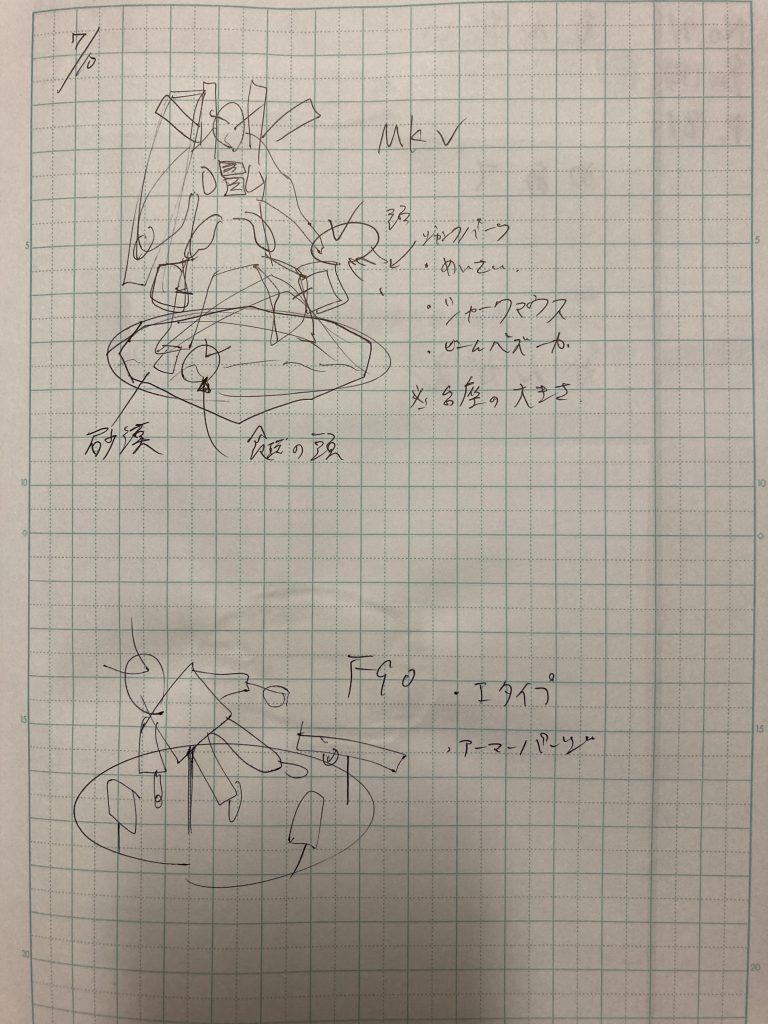 7/0
MkV
頭
ジャンクパーツ
・めいさい
・シャークマウス
・ビームバズーカ
※台座の大きさ
砂漠
の頭
F90
・Iタイプ
・アーマーパージ
5
5
10
10
15
15
20
20